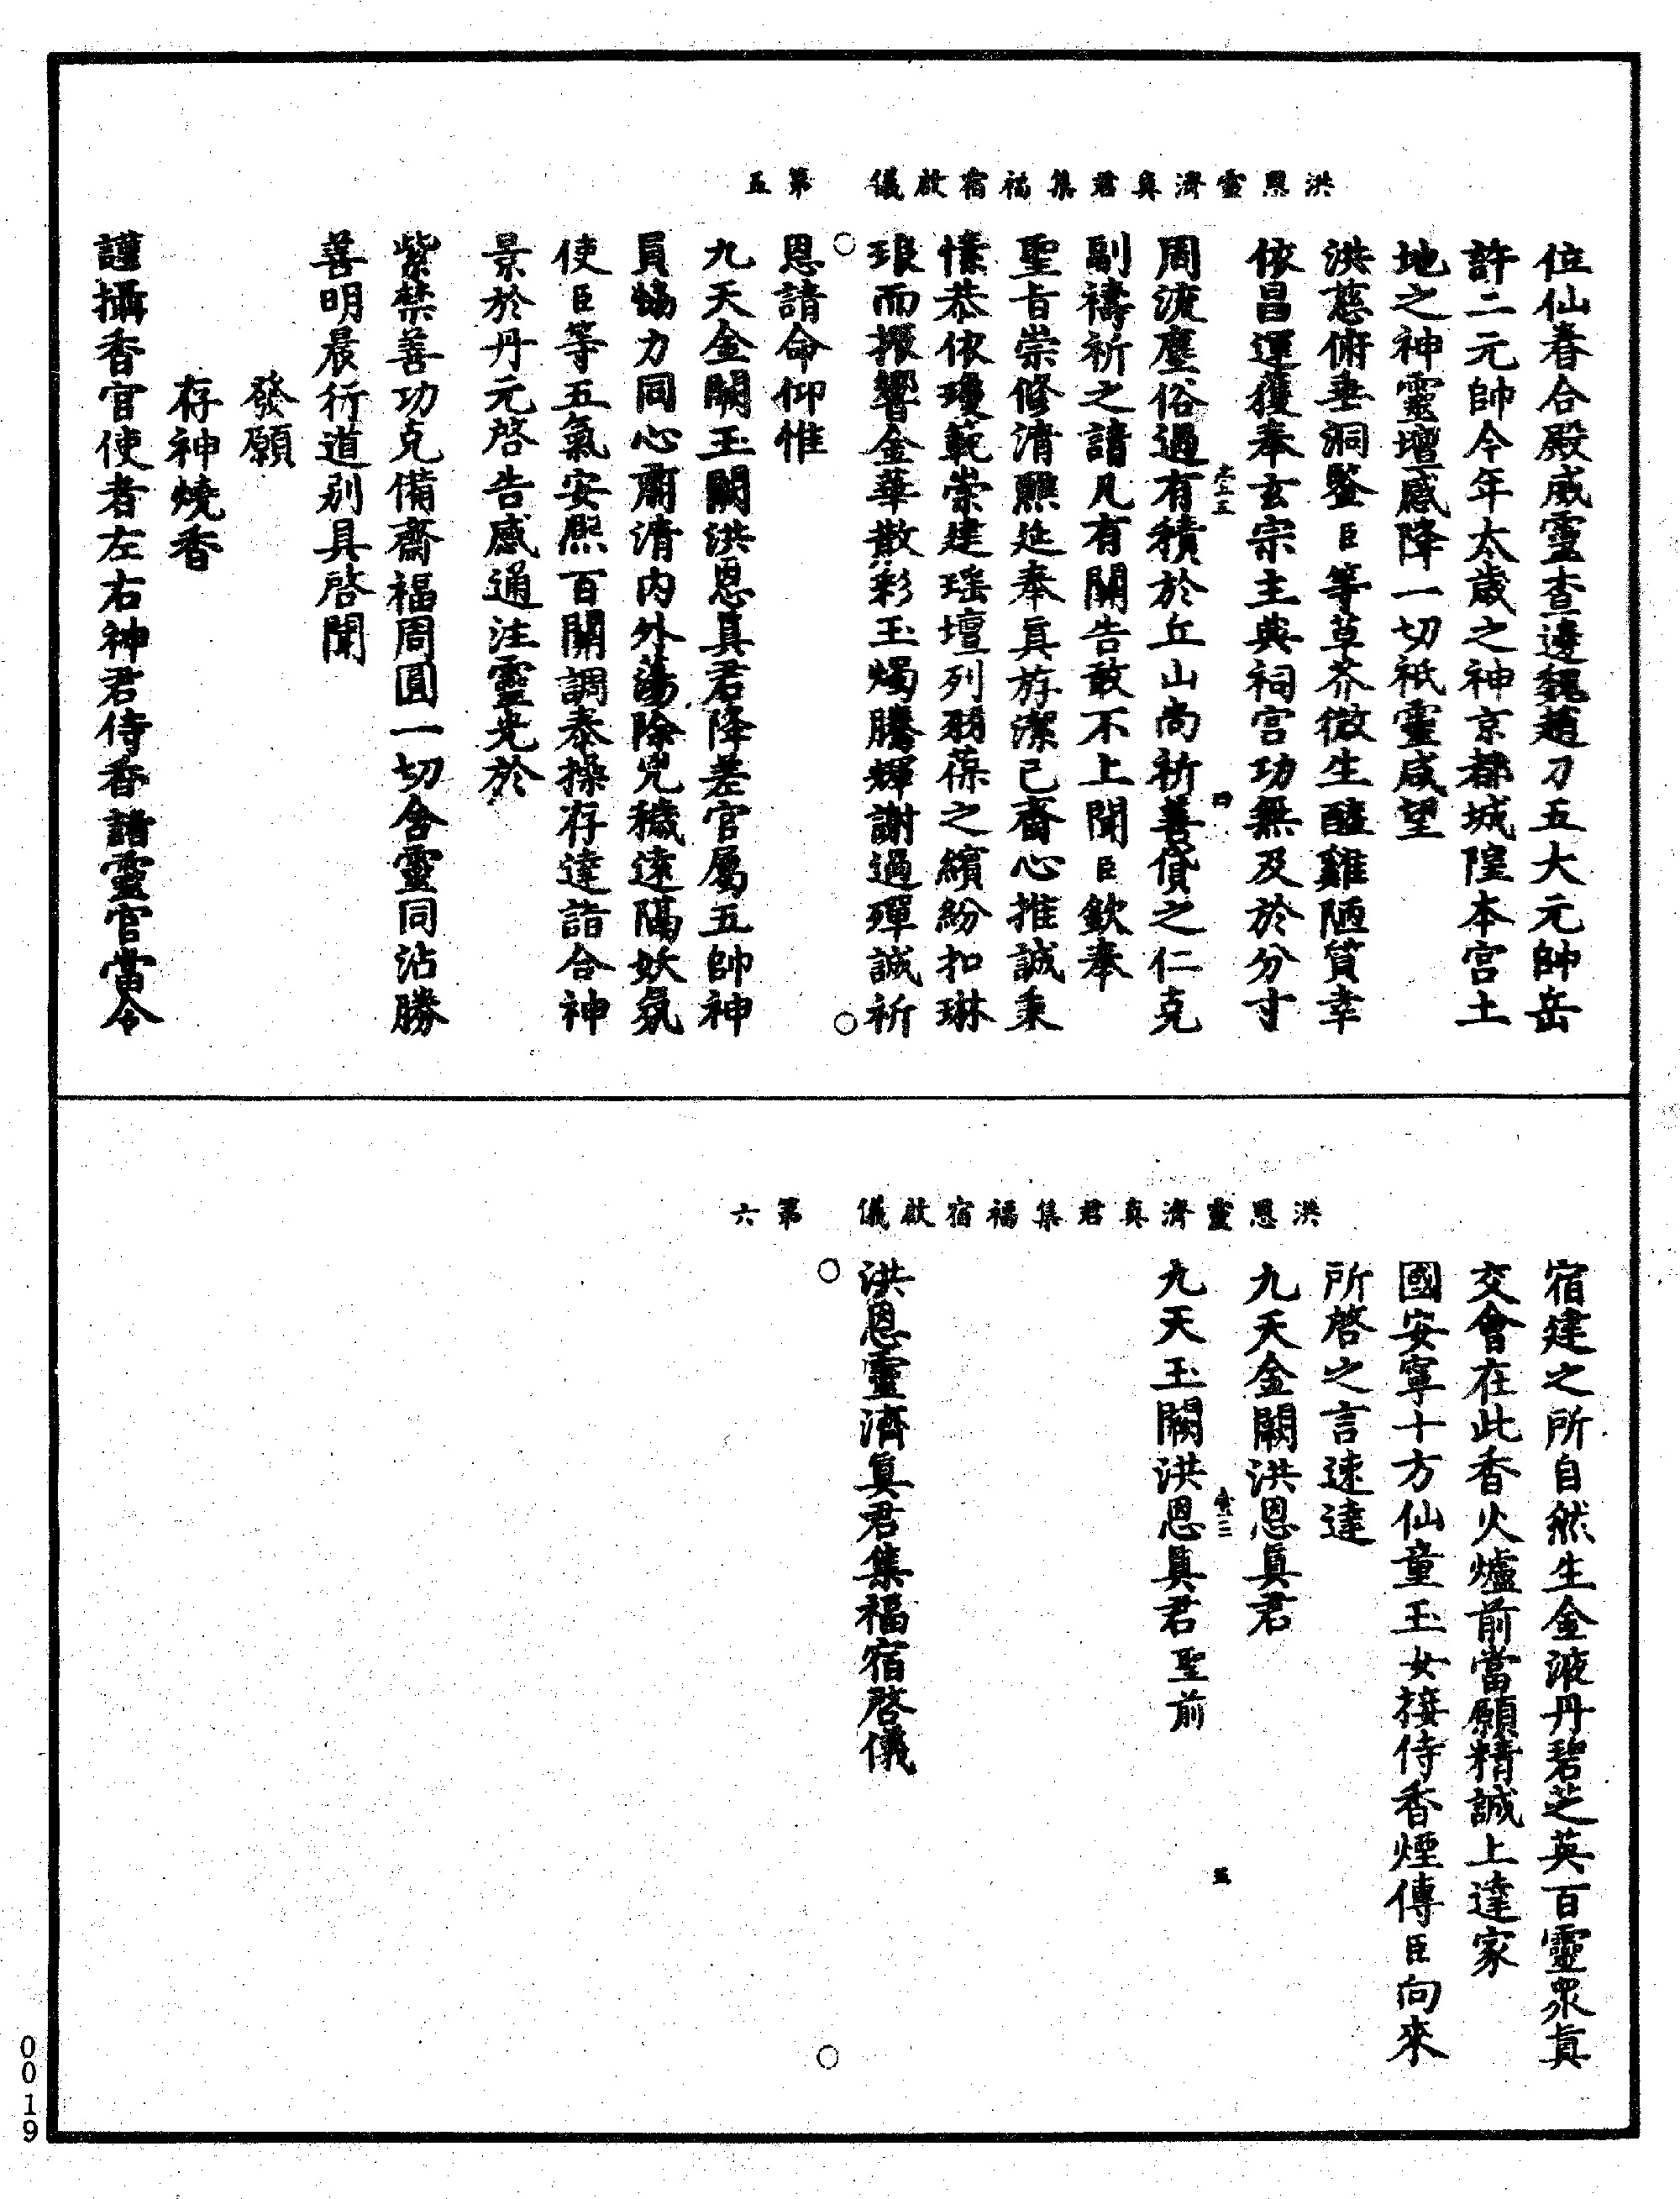 洪恩靈濟真君集福宿啟儀　第五
位仙春合殿威靈查邊魏趙刀五大元帥岳
許二元帥今年太歲之神京都城隍本宮土
地之神靈壇感降一切祇靈咸望
洪慈俯垂洞鑒臣等草芥微生醯雞陋質幸
依昌運獲奉玄宗主典祠宮功無及於分寸
周流塵俗過有積於丘山尚祈善貸之仁克
副禱祈之請凡有關告敢不上聞臣欽奉
聖旨崇修清醮延奉真斿潔己齋心推誠秉
愫恭依瓊範崇建瑤壇列羽葆之繽紛扣琳
琅而振響金華散彩玉燭騰輝謝過殫誠祈
恩請命仰惟
九天金闕玉闕洪恩真君降差官屬五帥神
員協力同心肅清內外蕩除兇穢遠隔妖氛
使臣等五氣安熙百關調泰操存達詣合神
景於丹元啓告感通注靈光於
紫禁善功克備齋福周圓一切含靈同沾勝
善明晨行道别具啓聞
發願
存神燒香
謹攝香官使者左右神君侍香諸靈官當令
四
洪恩靈濟真君集福宿啟儀　第六
宿建之所自然生金液丹碧芝英百靈眾真
交會在此香火爐前當願精誠上達家
國安寧十方仙童玉女接侍香煙傳臣向來
所啓之言速達
九天金闕洪恩真君
九天玉闕洪恩真君聖前
五
洪恩靈濟真君集福宿啓儀
0019